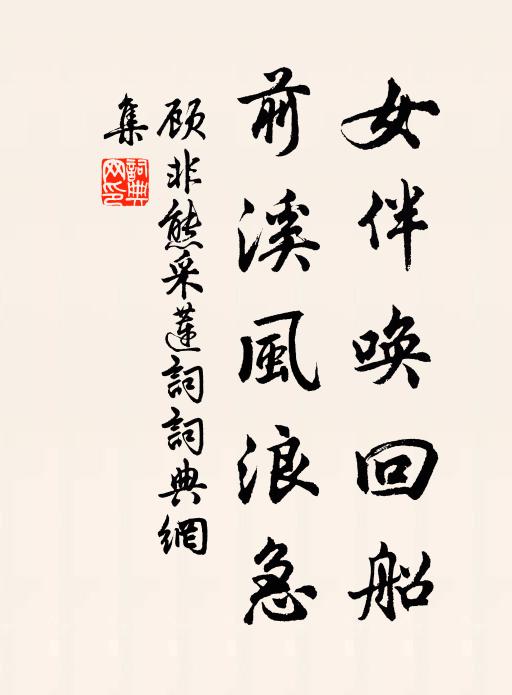 女伴唤回船
前溪風浪急
顾非熊采蓮詞詞典網
集
詞典網印